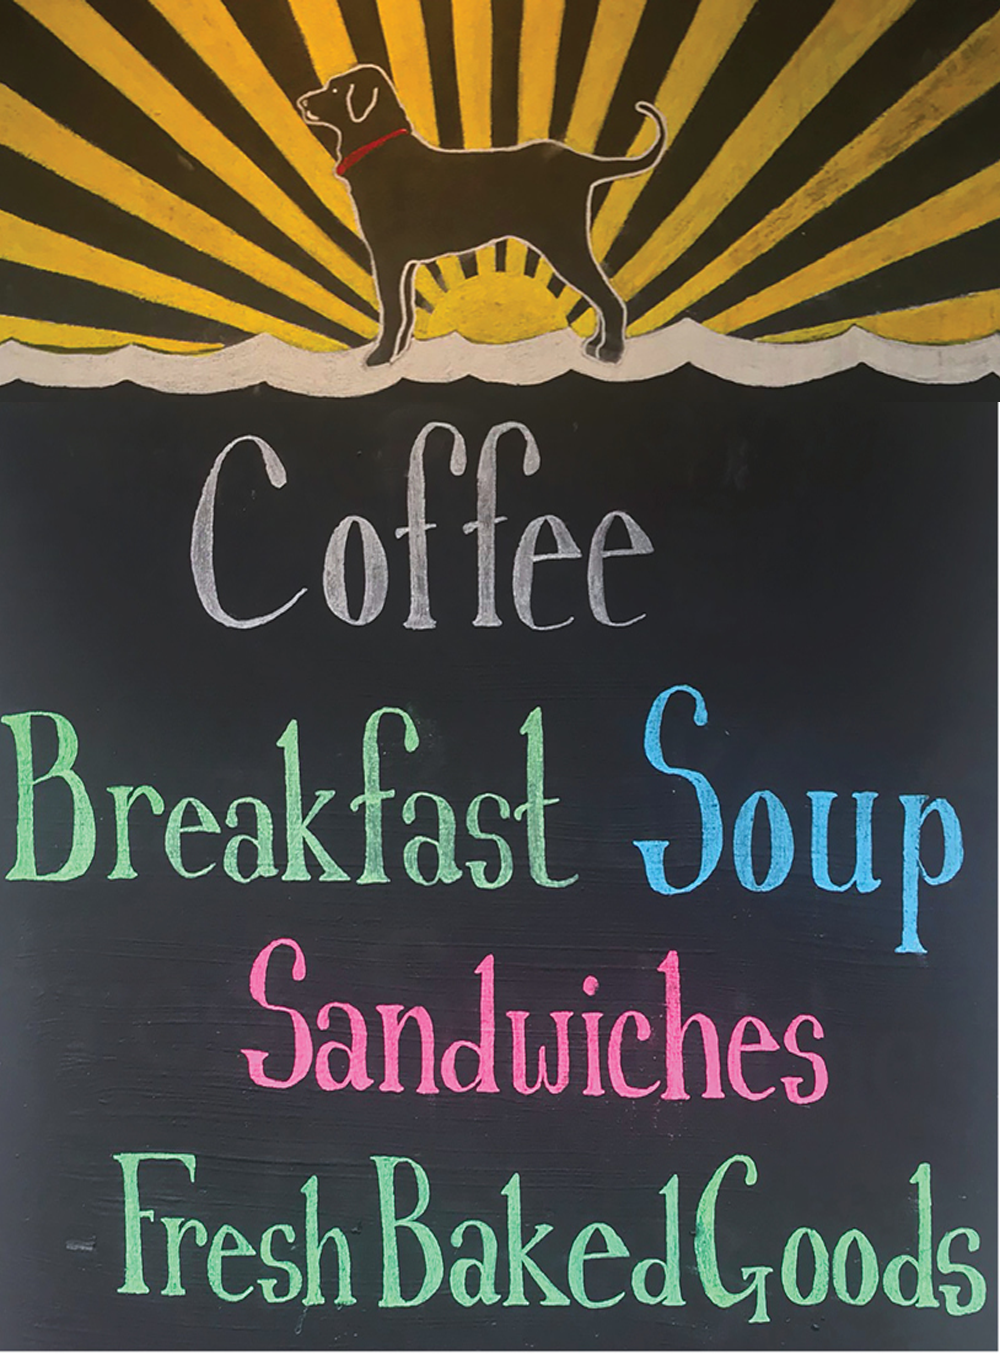 Coffee
Breakfast Soup
Sandwiches
Fresh Baked Goods